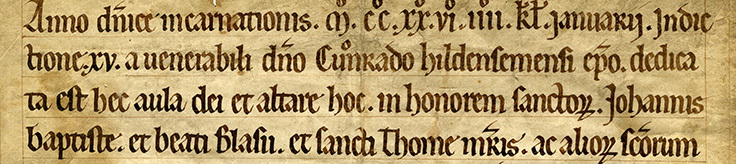 Anno dn̅ice incarnationis. M̊. CC̊. XX̊. VI̊. IIII. kl̅. Januarij. Indic
tione. xv. a uenerabili dn̅o Cůnrado hildensemensi ep̅o. dedica
ta est hec aula dei et altare hoc. in honorem sanctoꝝ. Johannis
baptiste. et beati Blasii. et sancti Thome mr̅is. ac alioꝝ sc̅orum